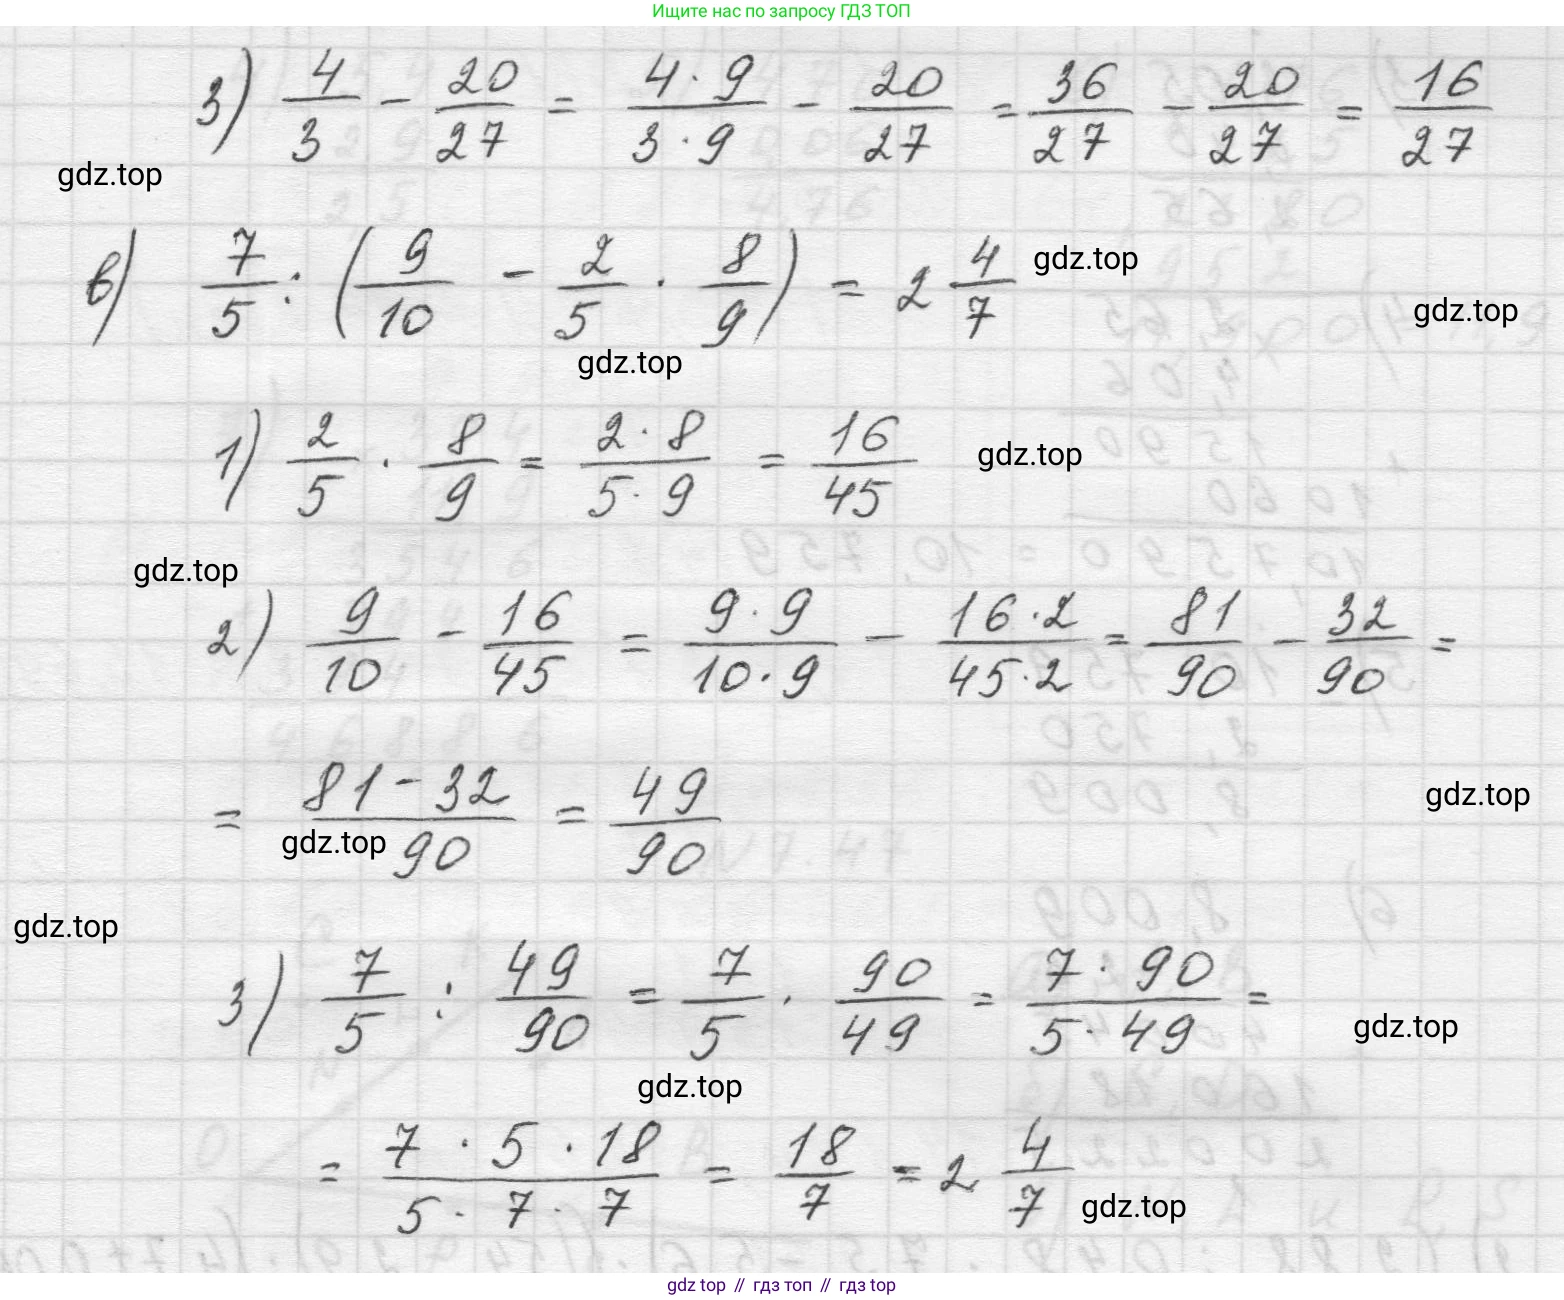 Ищите нас по запросу ГДЗ ТОП
3) 4/3 - 20/27 = 4·9/3·9 - 20/27 = 36/27 - 20/27 = 16/27
gdz.top
в) 7/5 : (9/10 - 2/5 · 8/9) = 2 4/7
gdz.top
gdz.top
gdz.top
1) 2/5 · 8/9 = 2·8/5·9 = 16/45
gdz.top
gdz.top
2) 9/10 - 16/45 = 9·9/10·9 - 16·2/45·2 = 81/90 - 32/90 =
= 81-32/90 = 49/90
gdz.top
gdz.top
gdz.top
3) 7/5 : 49/90 = 7/5 · 90/49 = 7·90/5·49 =
gdz.top
gdz.top
= 7·5·18/5·7·7 = 18/7 = 2 4/7
gdz.top
gdz top // гдз топ // гдз top